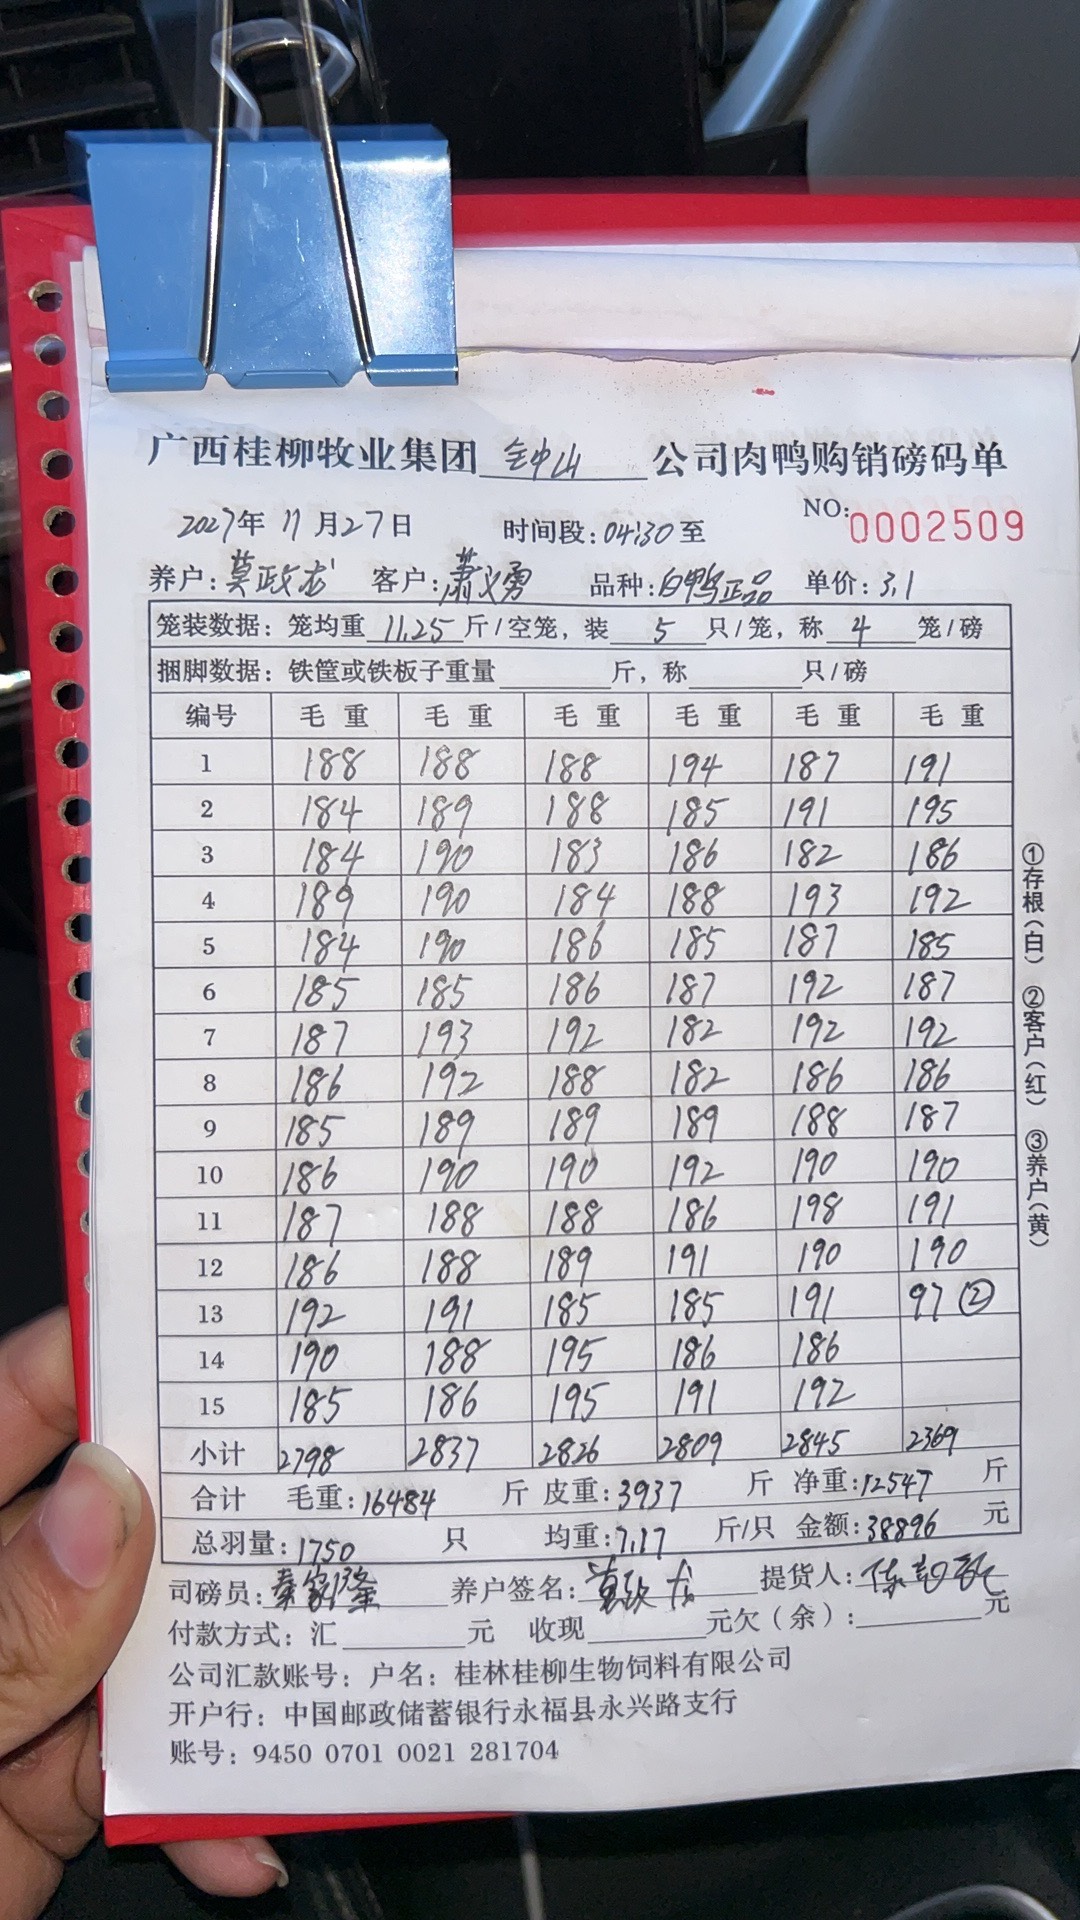 广西桂柳牧业集团 钟山 公司肉鸭购销磅码单
2027年 11月27日 时间段:04:30至 NO:0002509
养户:莫政龙 客户:萧义勇 品种:白鸭正品 单价:3.1
笼装数据:笼均重 11.25 斤/空笼,装 5 只/笼,称 4 笼/磅
捆脚数据:铁筐或铁板子重量 斤,称 只/磅
编号 毛重 毛重 毛重 毛重 毛重 毛重
1 188 188 188 194 187 191
2 184 189 188 185 191 195
3 184 190 183 186 182 186
4 189 190 184 188 193 192
5 184 190 186 185 187 185
6 185 185 186 187 192 187
7 187 193 192 182 192 192
8 186 192 188 182 186 186
9 185 189 189 189 188 187
10 186 190 190 192 190 190
11 187 188 188 186 198 191
12 186 188 189 191 190 190
13 192 191 185 185 191 97 ②
14 190 188 195 186 186
15 185 186 195 191 192
小计 2798 2837 2826 2809 2845 2369
合计 毛重:16484 斤 皮重:3937 斤 净重:12547 斤
总羽量:1750 只 均重:7.17 斤/只 金额:38896 元
司磅员:秦家隆 养户签名:莫政龙 提货人:
付款方式:汇 元 收现 元欠(余): 元
公司汇款账号:户名:桂林桂柳生物饲料有限公司
开户行:中国邮政储蓄银行永福县永兴路支行
账号:9450 0701 0021 281704
①存根(白) ②客户(红) ③养户(黄)